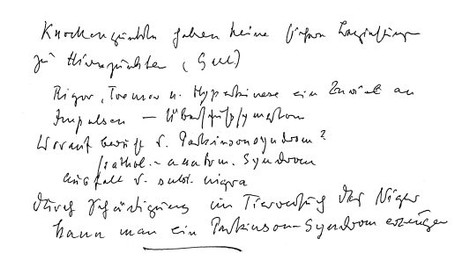 Knochenpunkte haben keine
zu Hirnpunkten
Rigor, Tremor u. Hyperkinese ein Zuviel an
Impulsen —
Worauf beruht d. Parkinsonsyndrom?
pathol.-anatom. Syndrom
Ausfall d. subst. nigra
durch Schädigung im Tierversuch der Nigra
kann man ein Parkinson-Syndrom erzeugen